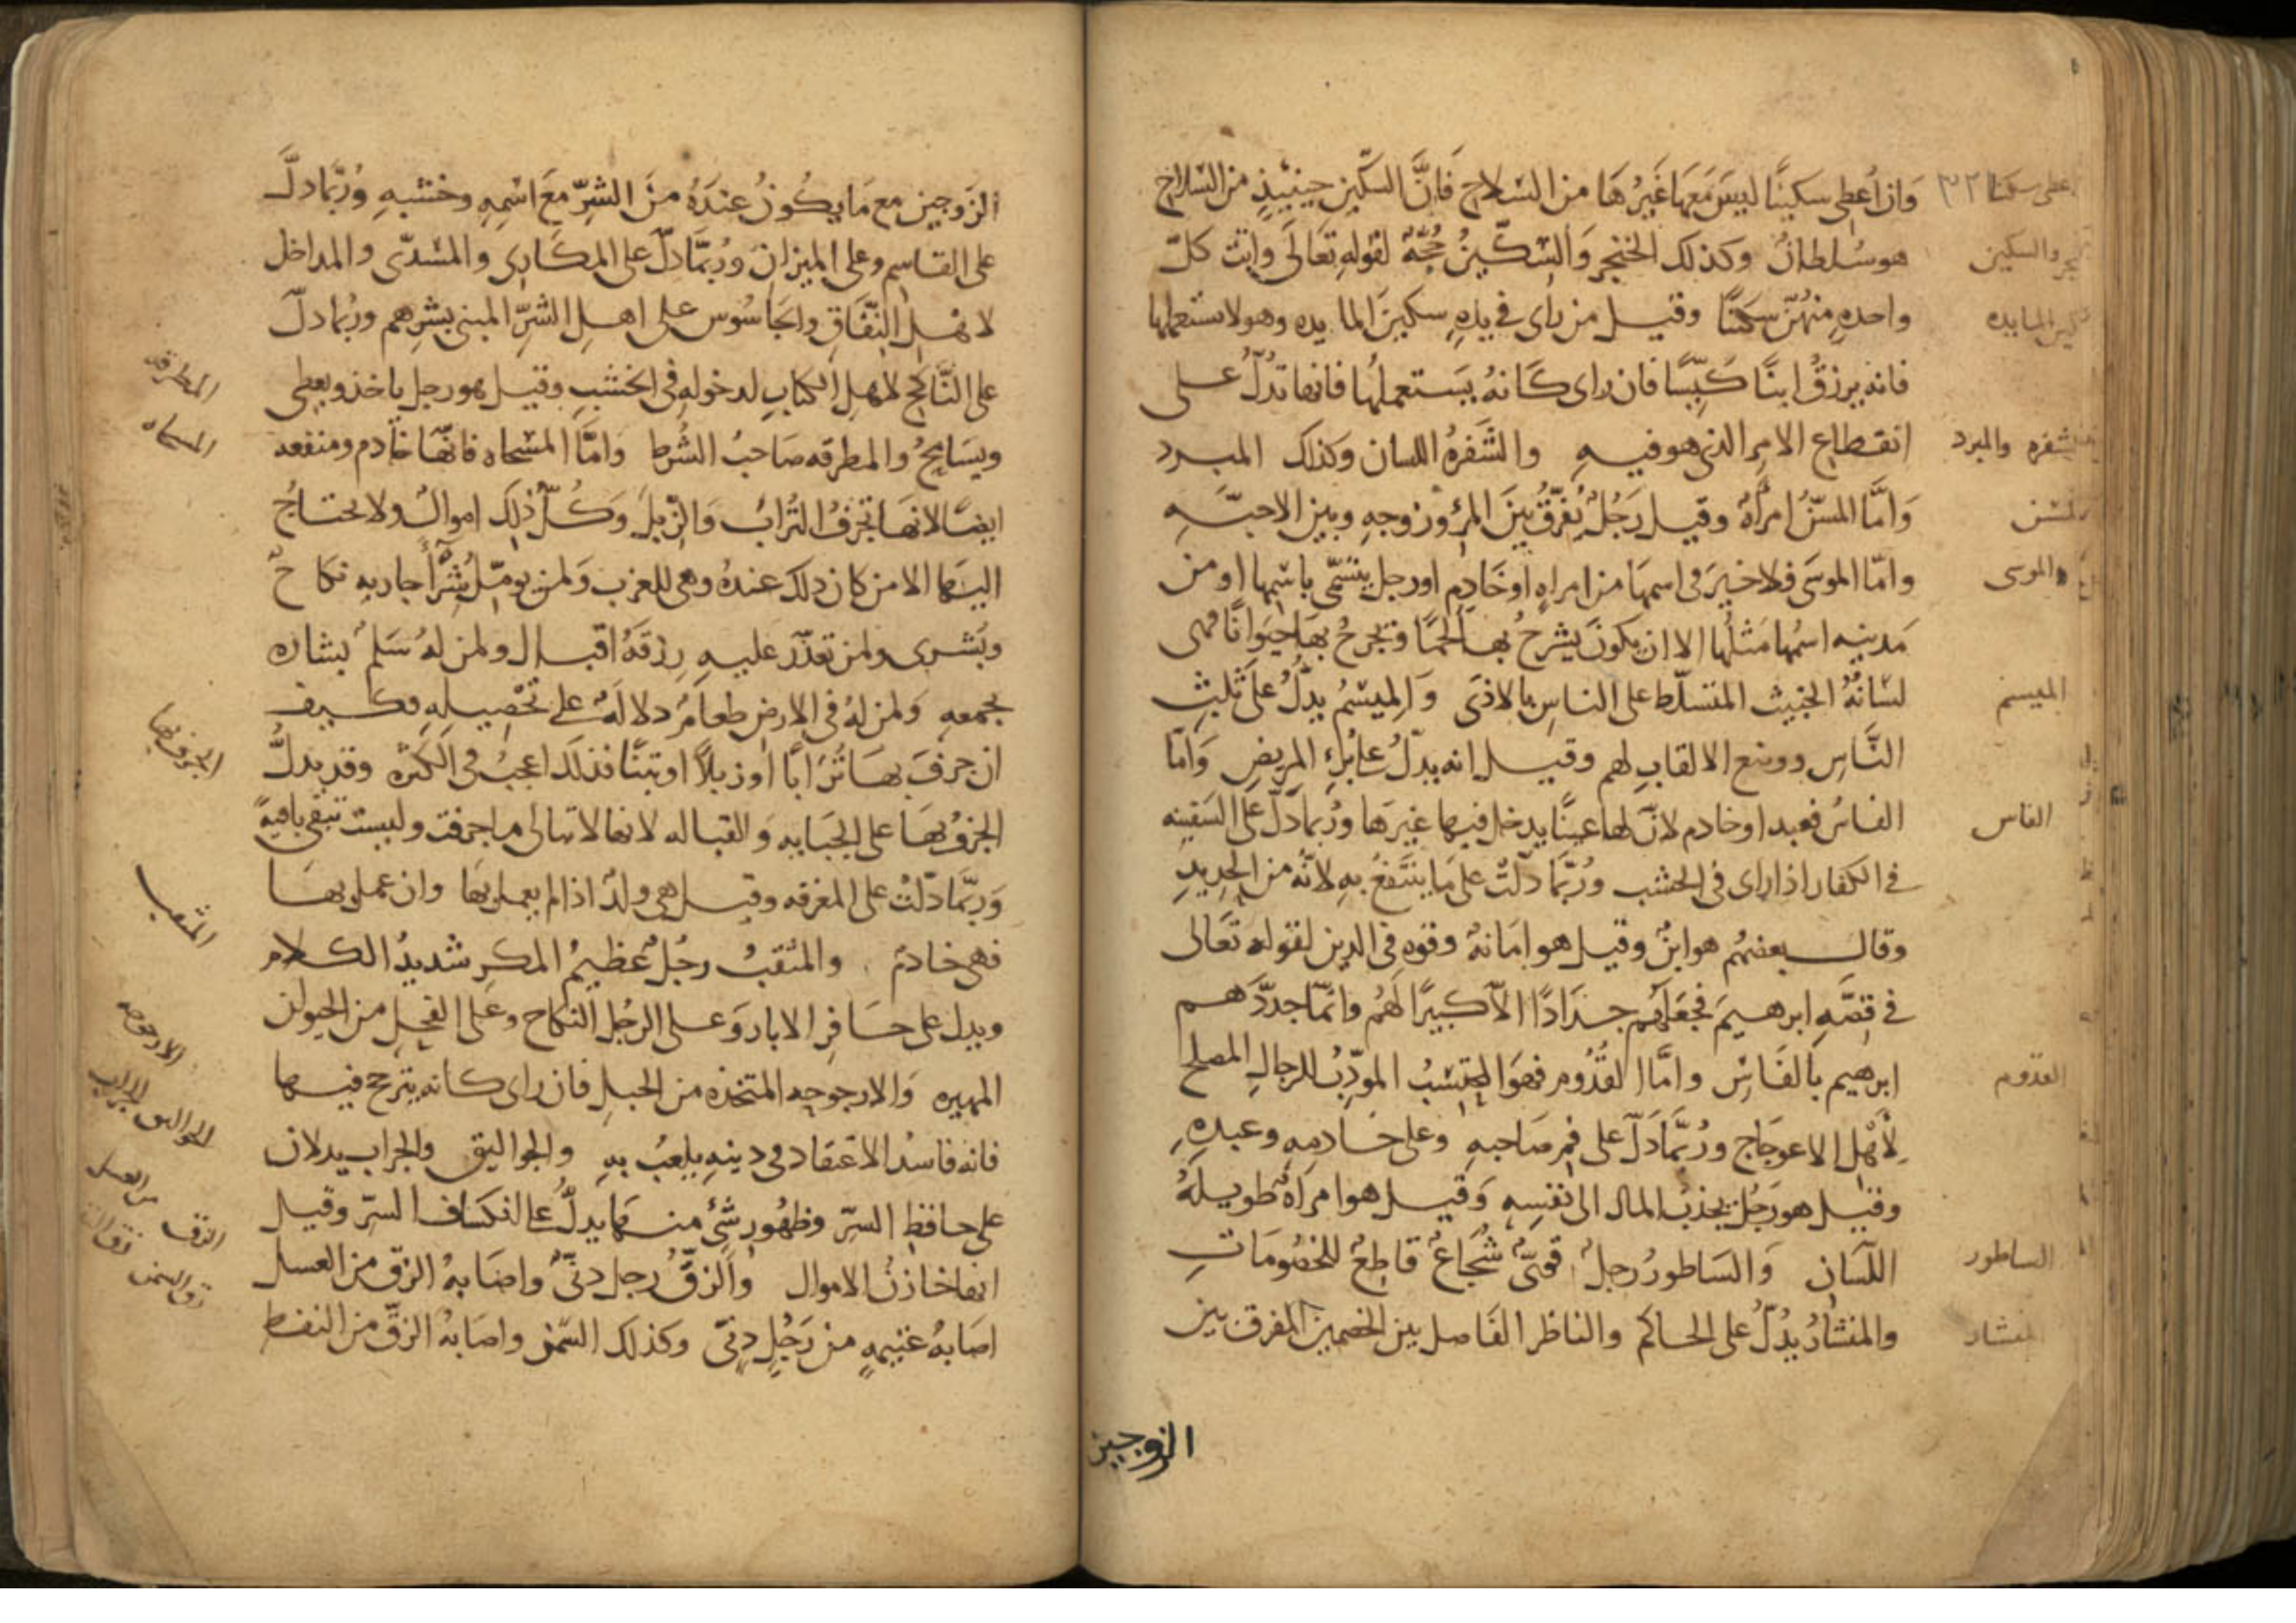 وَان اُعطِي سكينًا ليسَ مَعَهَا غَيرُهَا من السّلاح فَانَّ السكّين حِينَئِذٍ من السّلاح
هو سُلطانٌ وكذلك الخنجر وَالسّكّينُ حُجّةٌ لقولهِ تعَالىَ وَاتت كلّ
واحدهٍ منهُنّ سِكيّنًا وقيل من رأى في يدهِ سكينَ المايده وهو لا يستعملها
فانه يرزقُ ابنًا كَيّسًا فان راى كَانهُ يَستعملهُا فانها تدُلّ على
انقطاع الامرِ الذي هو فيهِ والشَّفرهُ اللسان وكذلك المبرد
وَامَّا المسَنُّ امرأةٌ وقيل رَجُلٌ يُفَرّقُ بَينَ المرْءِ وزوجهِ وبين الاحبَّهِ
وامّا الموسَى فلا خيرَ في اسمهَا من امراهٍ اَوخَادِمٍ اورجلٍ يتسَمّى باسْمها او من
مَدينه اسمُها مَثلُها الا ان يكونَ يشرحُ بها لحمًا وتجرحُ بهَا حيَوانًا فهى
لسَانهُ الخبيث المتسلّط على الناسِ بالاذىَ وَالميسَمُ يدلُّ علىَ ثلبِ
النَّاسِ ووضع الالقابِ لهم وقيل انه يدلُّ على بُرءِ المريضِ وَامّا
الفاسُ فعبد او خادم لانّ لها عينًا يدخل فيها غيرَها ورُبّما دَلّ عَلىَ السّفينه
في الكفار اذا راى في الخشب ورُبّما دلّتْ على مَا ينتَفعُ بهِ لانّهُ من الحَدِيدِ
وقال بعضهُم هو ابنٌ وقيل هو امَانهٌ وقوه في الدين لقوله تعَالى
في قصّهِ ابرهيمَ فجعَلَهُم جذاذًا الاّ كَبيرًا لَهُم وانّما جدّدَهم
ابرهيم بالفَاسِ وامَّا القدُوم فهوَ المحتسِبُ المؤدِّبُ للرجالِ المصلح
لِأَهْل الاعوجَاج ورُبّما دَلّ على فمِ صَاحبهِ وعلى خَادمِهِ وعبدِهِ
وقيل هو رَجُل يجذبُ المال الى نفسِهِ وَقيل هو امراَةٌ طويلهُ
اللّسَانِ وَالسَاطورُ رجلٌ قويٌّ شُجَاعٌ قاطعٌ للخصُومَاتِ
والمنشارُ يدُلُّ على الحاكم والناظر الفَاصل بين الخصمين المفرق بين
الزوجين
اعطى سكينا ٣٢
والسكين
المايده
الشفره والمبرد
المسن
والموسى
الميسم
الفاس
القدّوم
الساطور
المنشار
الزَوجين مع مَا يكُونُ عندَهُ مِنَ الشرِّ مَعَ اسْمهِ وخشبهِ ورُبّما دلَّ
على القاسم وعلى الميزان ورُبّما دَلّ على المكَارِى والمسّدّى والمداخل
لاهْلِ النّفَاقِ والجَاسُوس على اهلِ الشرِّ المبنى بشرهم ورُبما دلّ
على النّاكح لاهلِ الكتابِ لدخولهِ في الخشب وقيل هو رجل ياخذ ويعطى
ويسَامحُ والمطرقه صَاحبُ الشُرط وَامَّا المسْحاه فانّها خادم ومنفعه
ايضًا لانهَا تجرفُ التُرابَ وَالزّبلَ وَكُلّ ذلِكَ اموالٌ ولا يحتاجُ
اليهَا الا من كان ذلك عندهُ وهى للعزب وَلمن يومّلُ شرَاجاريه نكاحٌ
وتَسَرى ولمن تعذّرَ عليهِ رِزقهُ اقبال ولمن لهُ سَلم بشاره
بجمعهِ وَلمن لهُ في الارض طعَامٌ دلالهٌ على تحَصِيلهِ فكيف
ان جَرفَ بهَا تُرابًا او زبلاً او تبنًا فذلك اعجبُ في الكَثره وقد يدلُّ
الجرفُ بهَا على الجبَايه وَالقباله لانها لا تبالى ما جرفت وليست تبقى باقيهً
وَربّما دَلتْ على المغرفه وقيل هي ولدٌ اذا لم يعمل بهَا وان عمل بها
فهي خادم والمثقبُ رجُلٌ عَظيمُ المكرِ شديدُ الكلام
ويدل على حَافِرِ الابار وَعلى الرجُل النكاح وعَلى الفحلِ من الحيوان
المهيره وَالارجوحه المتخذه من الحبلِ فان راى كانه يترجح فيها
فانه فاسدُ الاعتقاد في دينهِ يلعبُ بهِ والجواليق والجراب يدلان
على حافظِ السرّ وظهُورِ شىْءٍ منهما يدلُّ على انكشاف السرّ وقيل
انها خازنُ الاموال وَالزقُّ رجل دنىٌّ واصَابهُ الزقّ من العسل
اصَابهُ غنيمهٍ من رَجُلٍ دِنّى وكذلك السّمن واصَابهُ الزقّ من النفط
المطرقه
المسحاه
الجرف بها
المثقب
الارجوحه
الجواليق والجراب
الزق من العسل
زق السمن